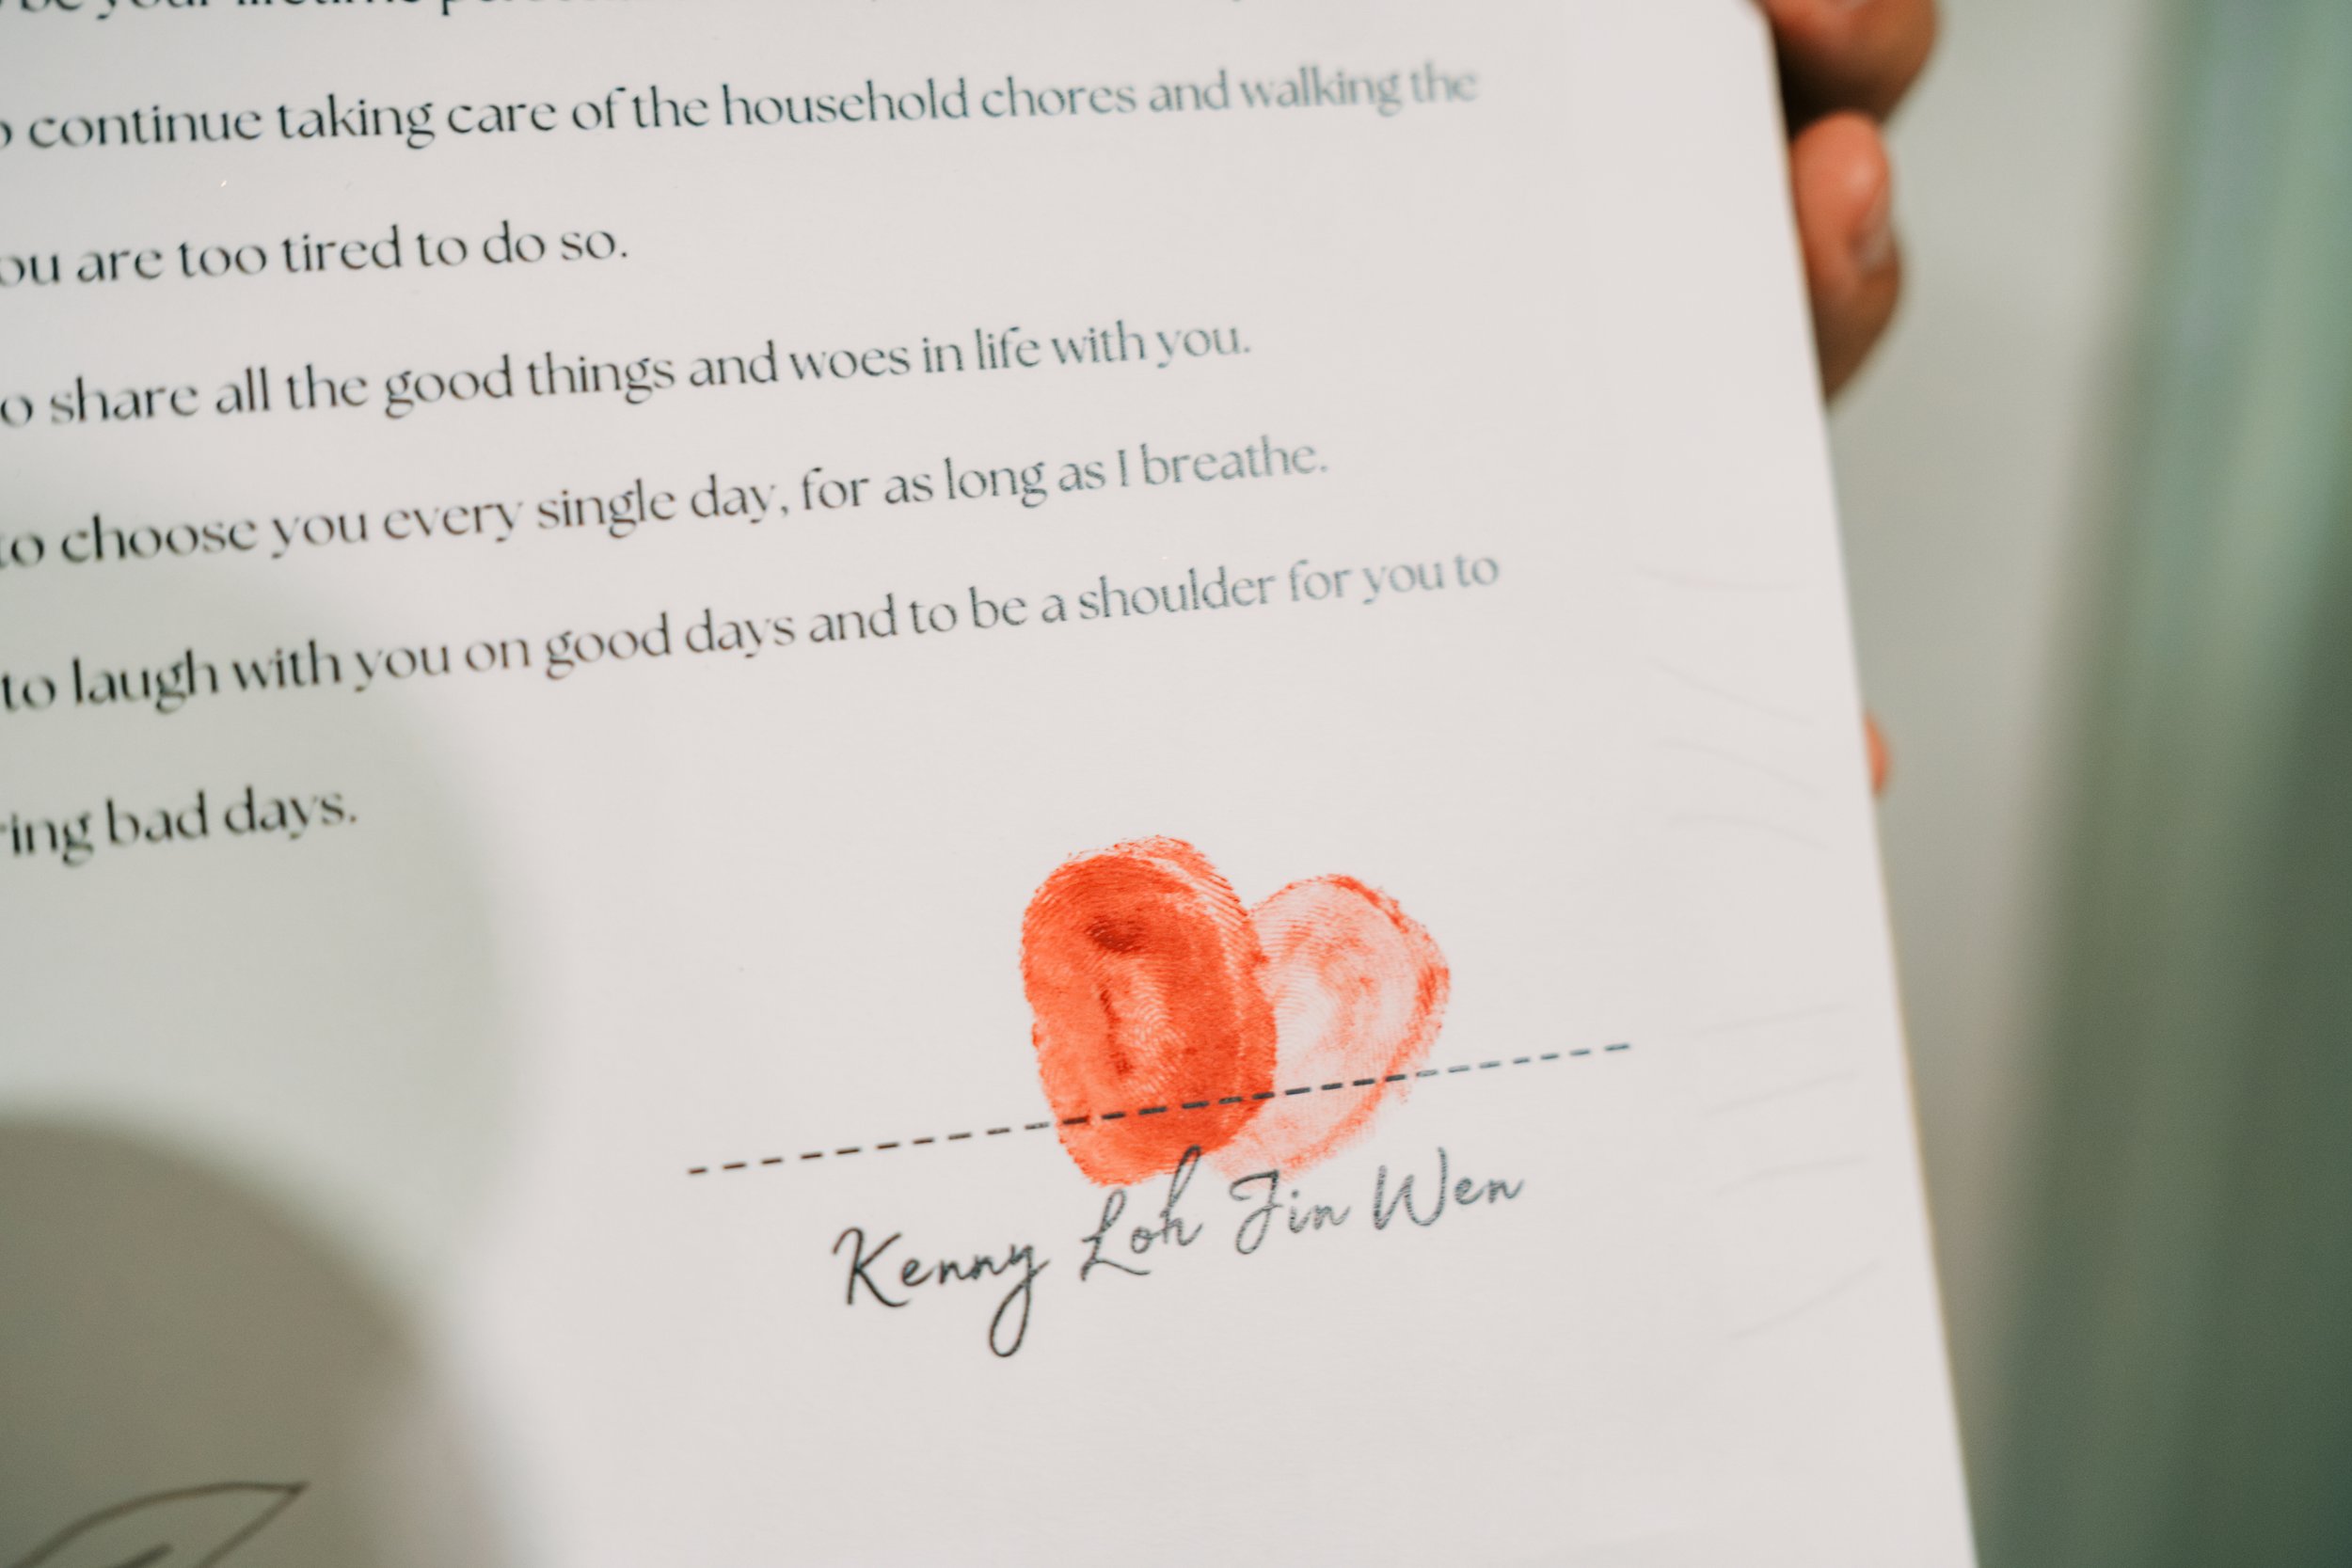 be your lifetime
continue taking care of the household chores and walking the
are too tired to do so.
share all the good things and woes in life with you.
to choose you every single day, for as long as I breathe.
to laugh with you on good days and to be a shoulder for you to
bad days.
Kenny Loh Jin Wen